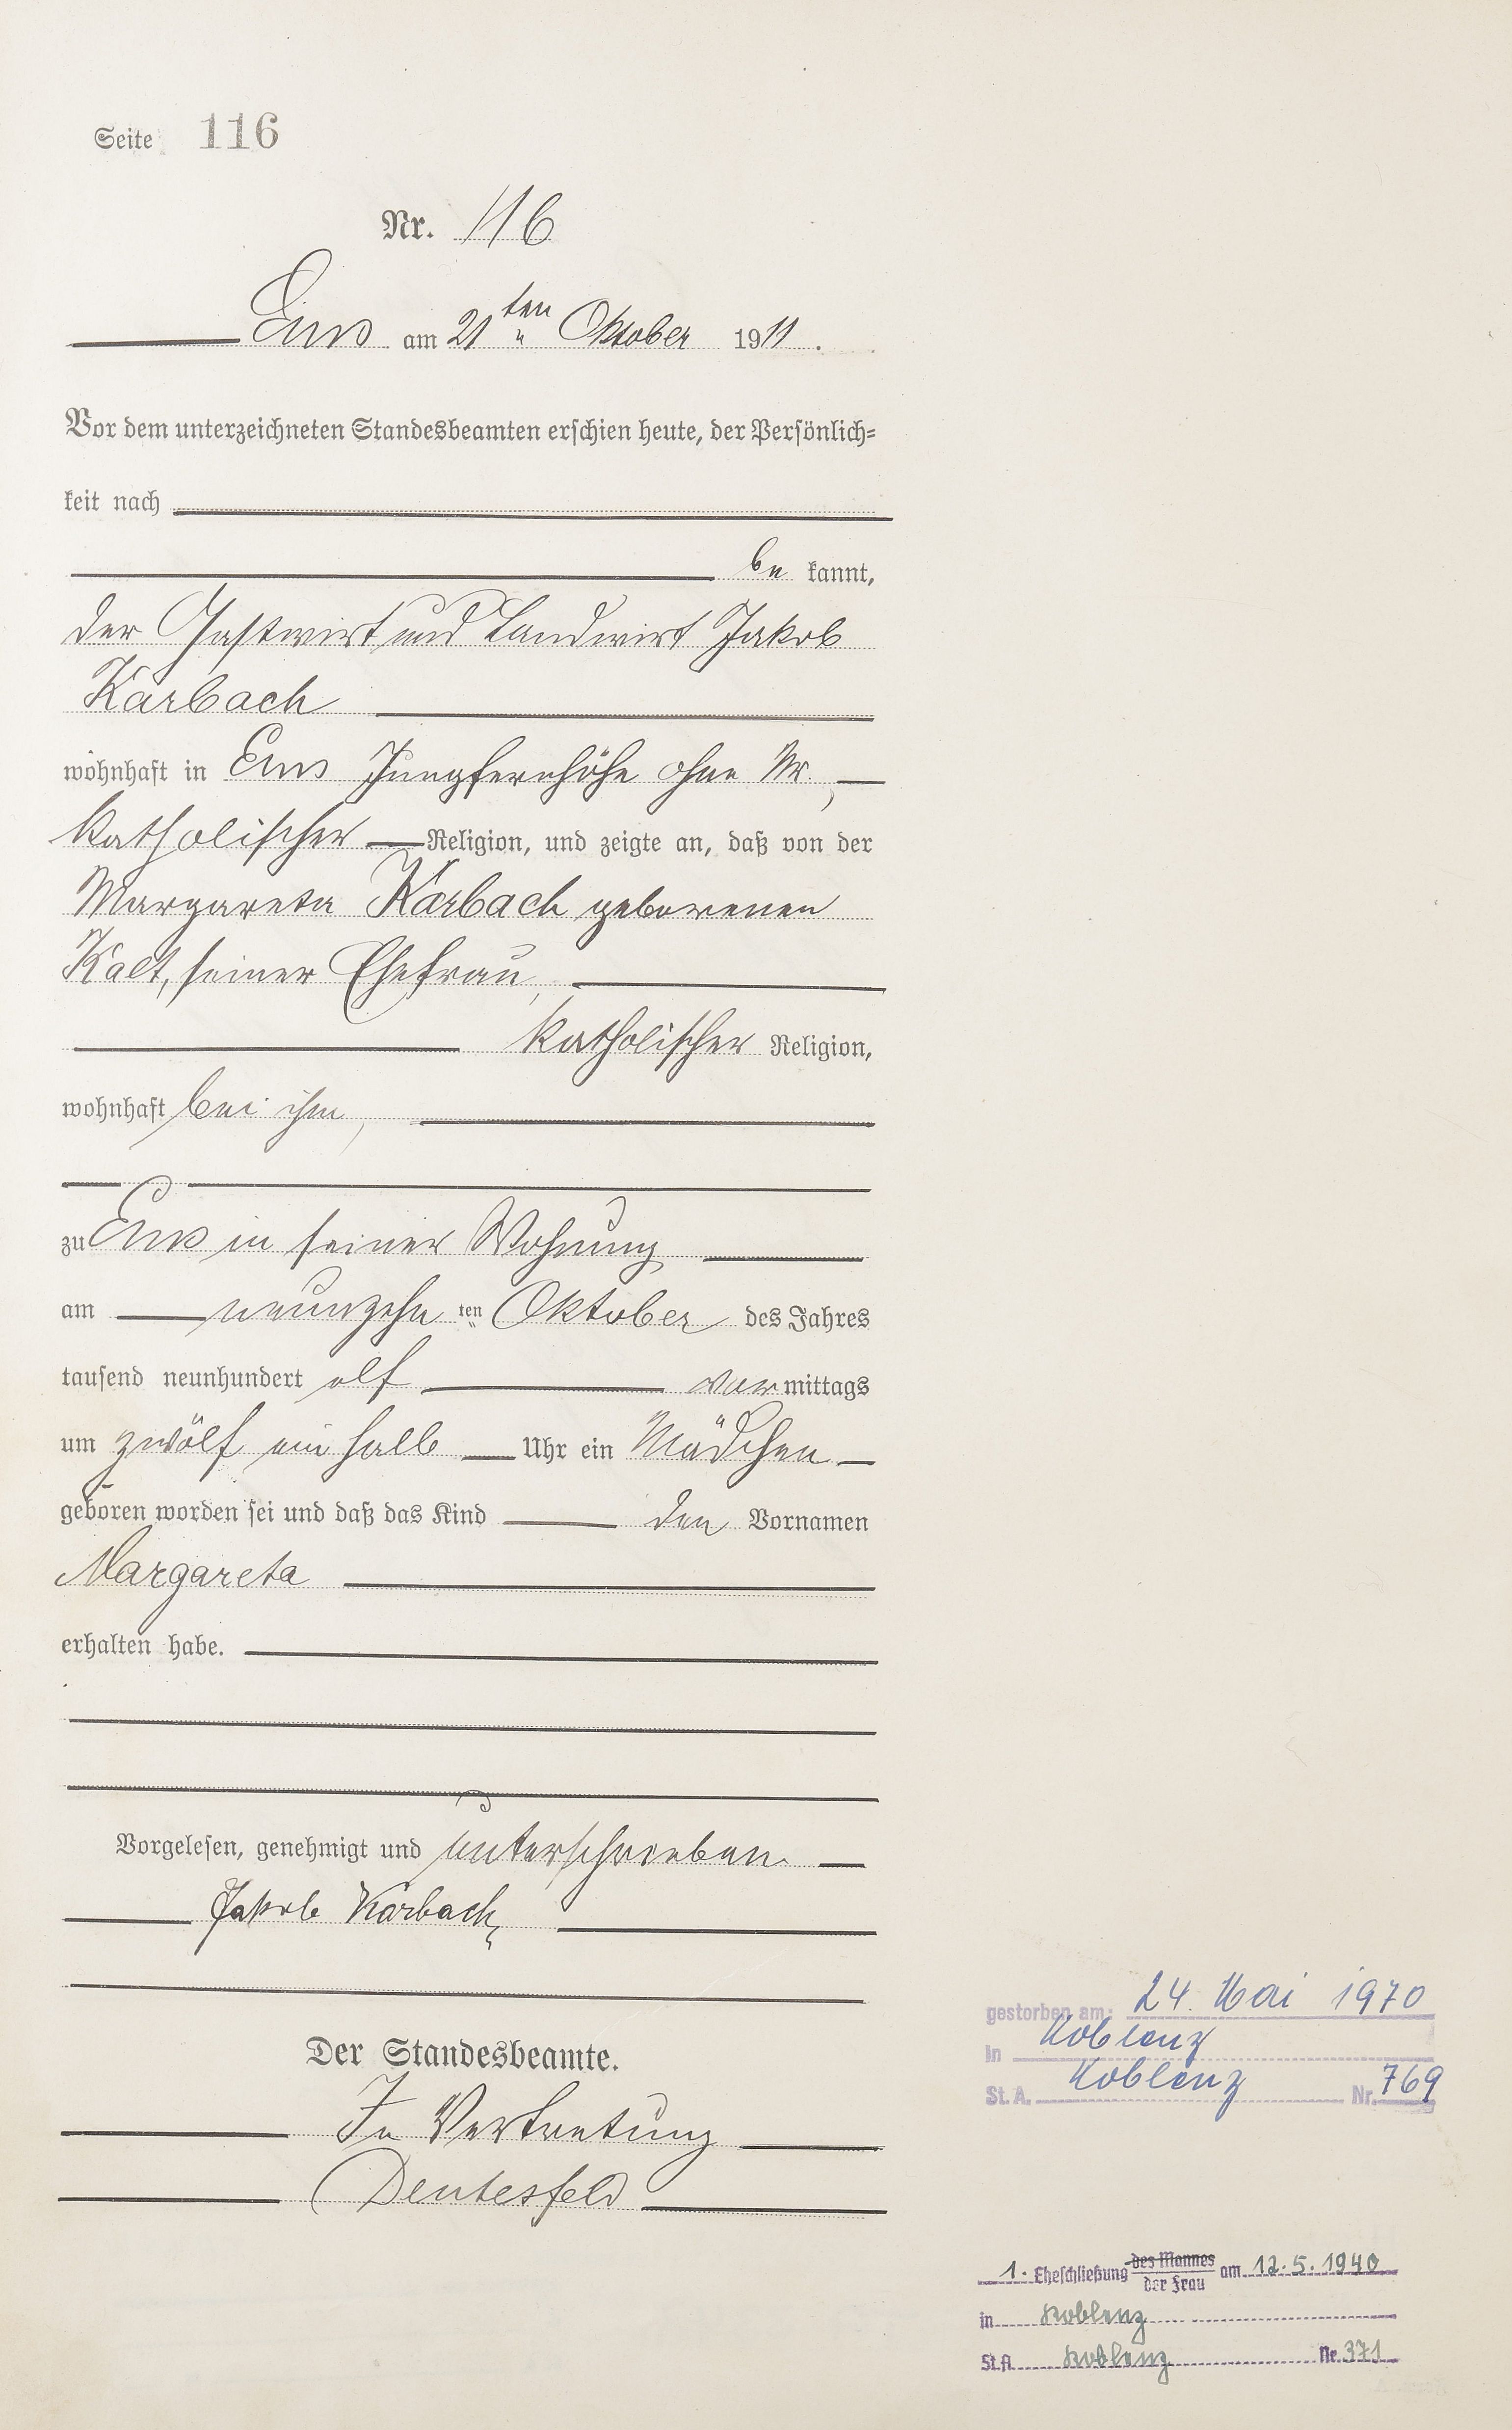 Seite 116
Nr. 116
Ems am 21ten Oktober 1911.
Vor dem unterzeichneten Standesbeamten erschien heute, der Persönlich=
keit nach
be kannt,
der Gastwirt und Landwirt Jakob
Karbach
wohnhaft in Ems Jungfernhöhe ohne Nr.,
katholischer Religion, und zeigte an, daß von der
Margareta Karbach geborenen
Kalt, seiner Ehefrau,
katholischer Religion,
wohnhaft bei ihm,
zu Ems in seiner Wohnung
am neunzehn ten Oktober des Jahres
tausend neunhundert elf vormittags
um zwölf ein halb Uhr ein Mädchen
geboren worden sei und daß das Kind den Vornamen
Margareta
erhalten habe.
Vorgelesen, genehmigt und unterschrieben.
Jakob Karbach,
Der Standesbeamte.
In Vertretung
Deutesfeld
gestorben am: 24. Mai 1970
in Koblenz
St. A. Koblenz Nr. 769
1. Eheschließung des Mannes am 12.5.1940
der Frau
in Koblenz
St.A. Koblenz Nr. 371